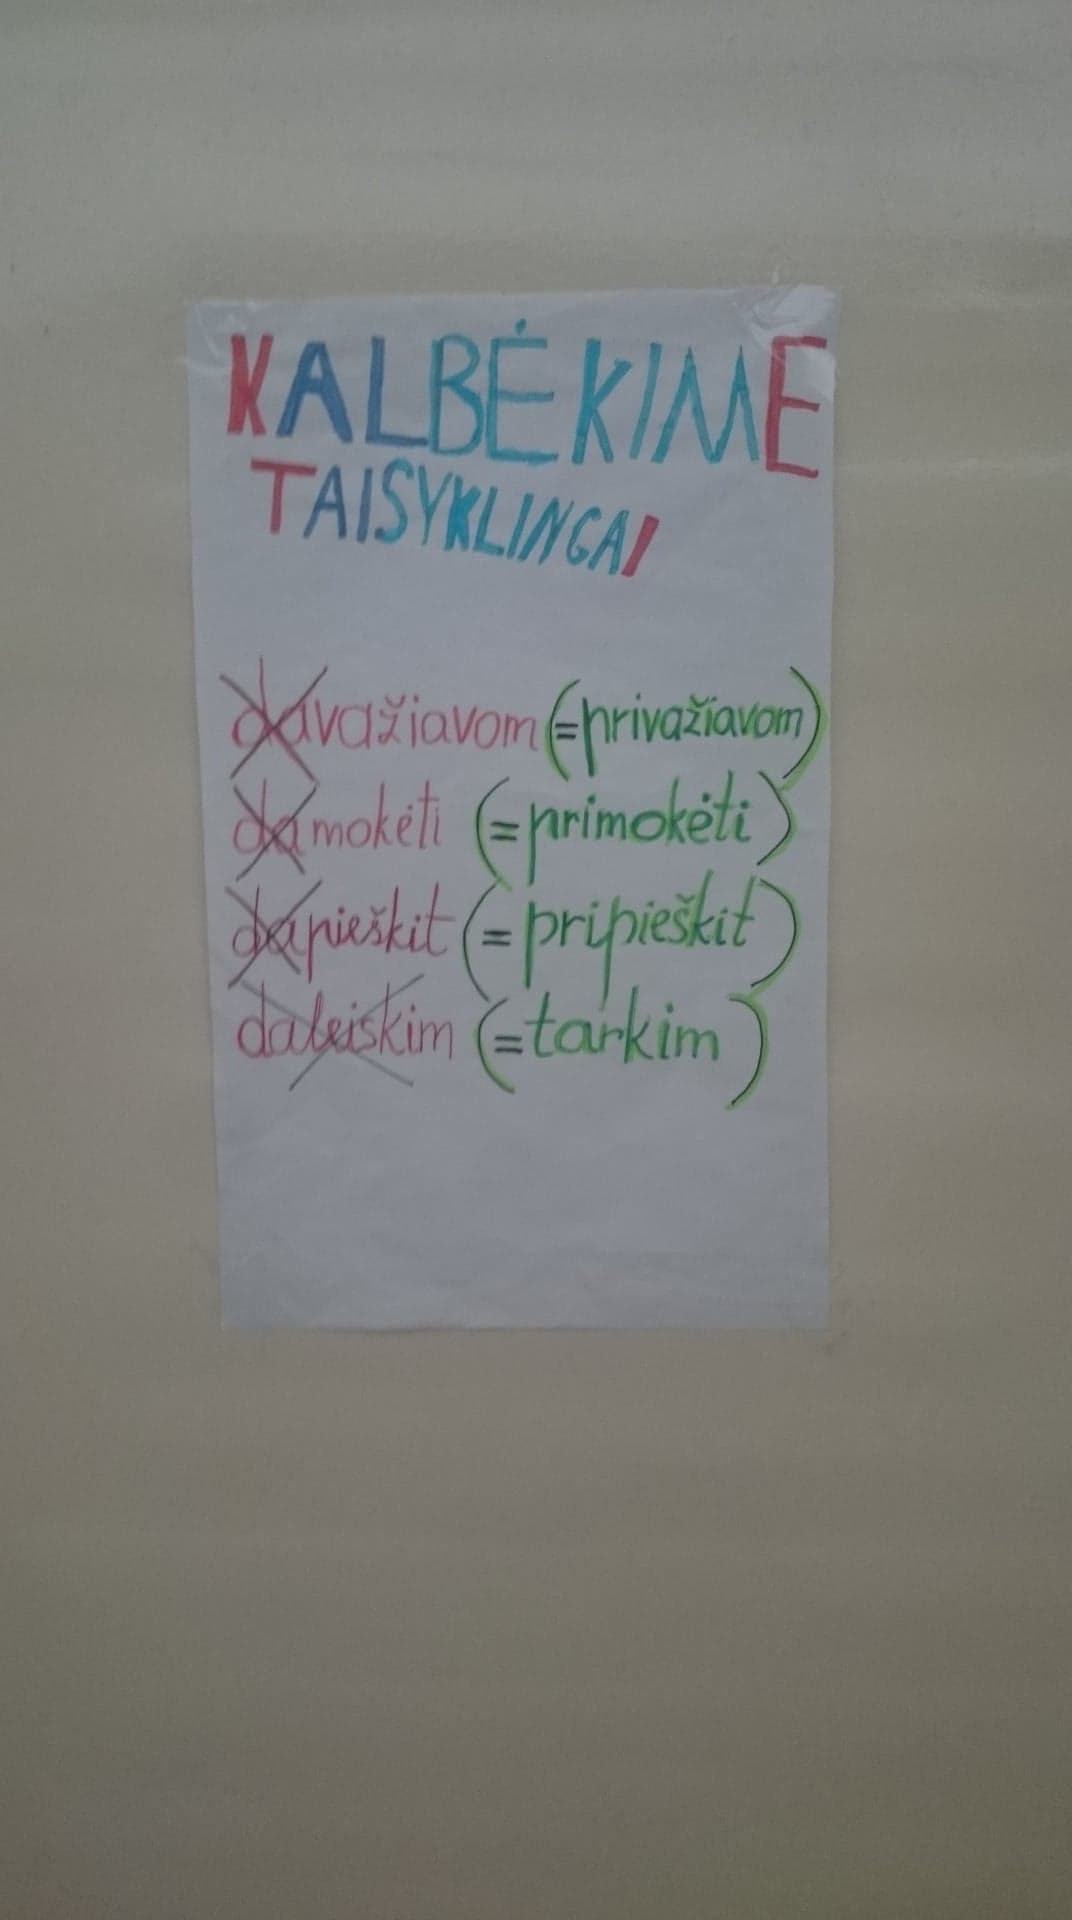 KALBĖKIME
TAISYKLINGAI
davažiavom (=privažiavom)
damokėti (=primokėti)
dapieškit (=pripieškit)
daleiskim (=tarkim)